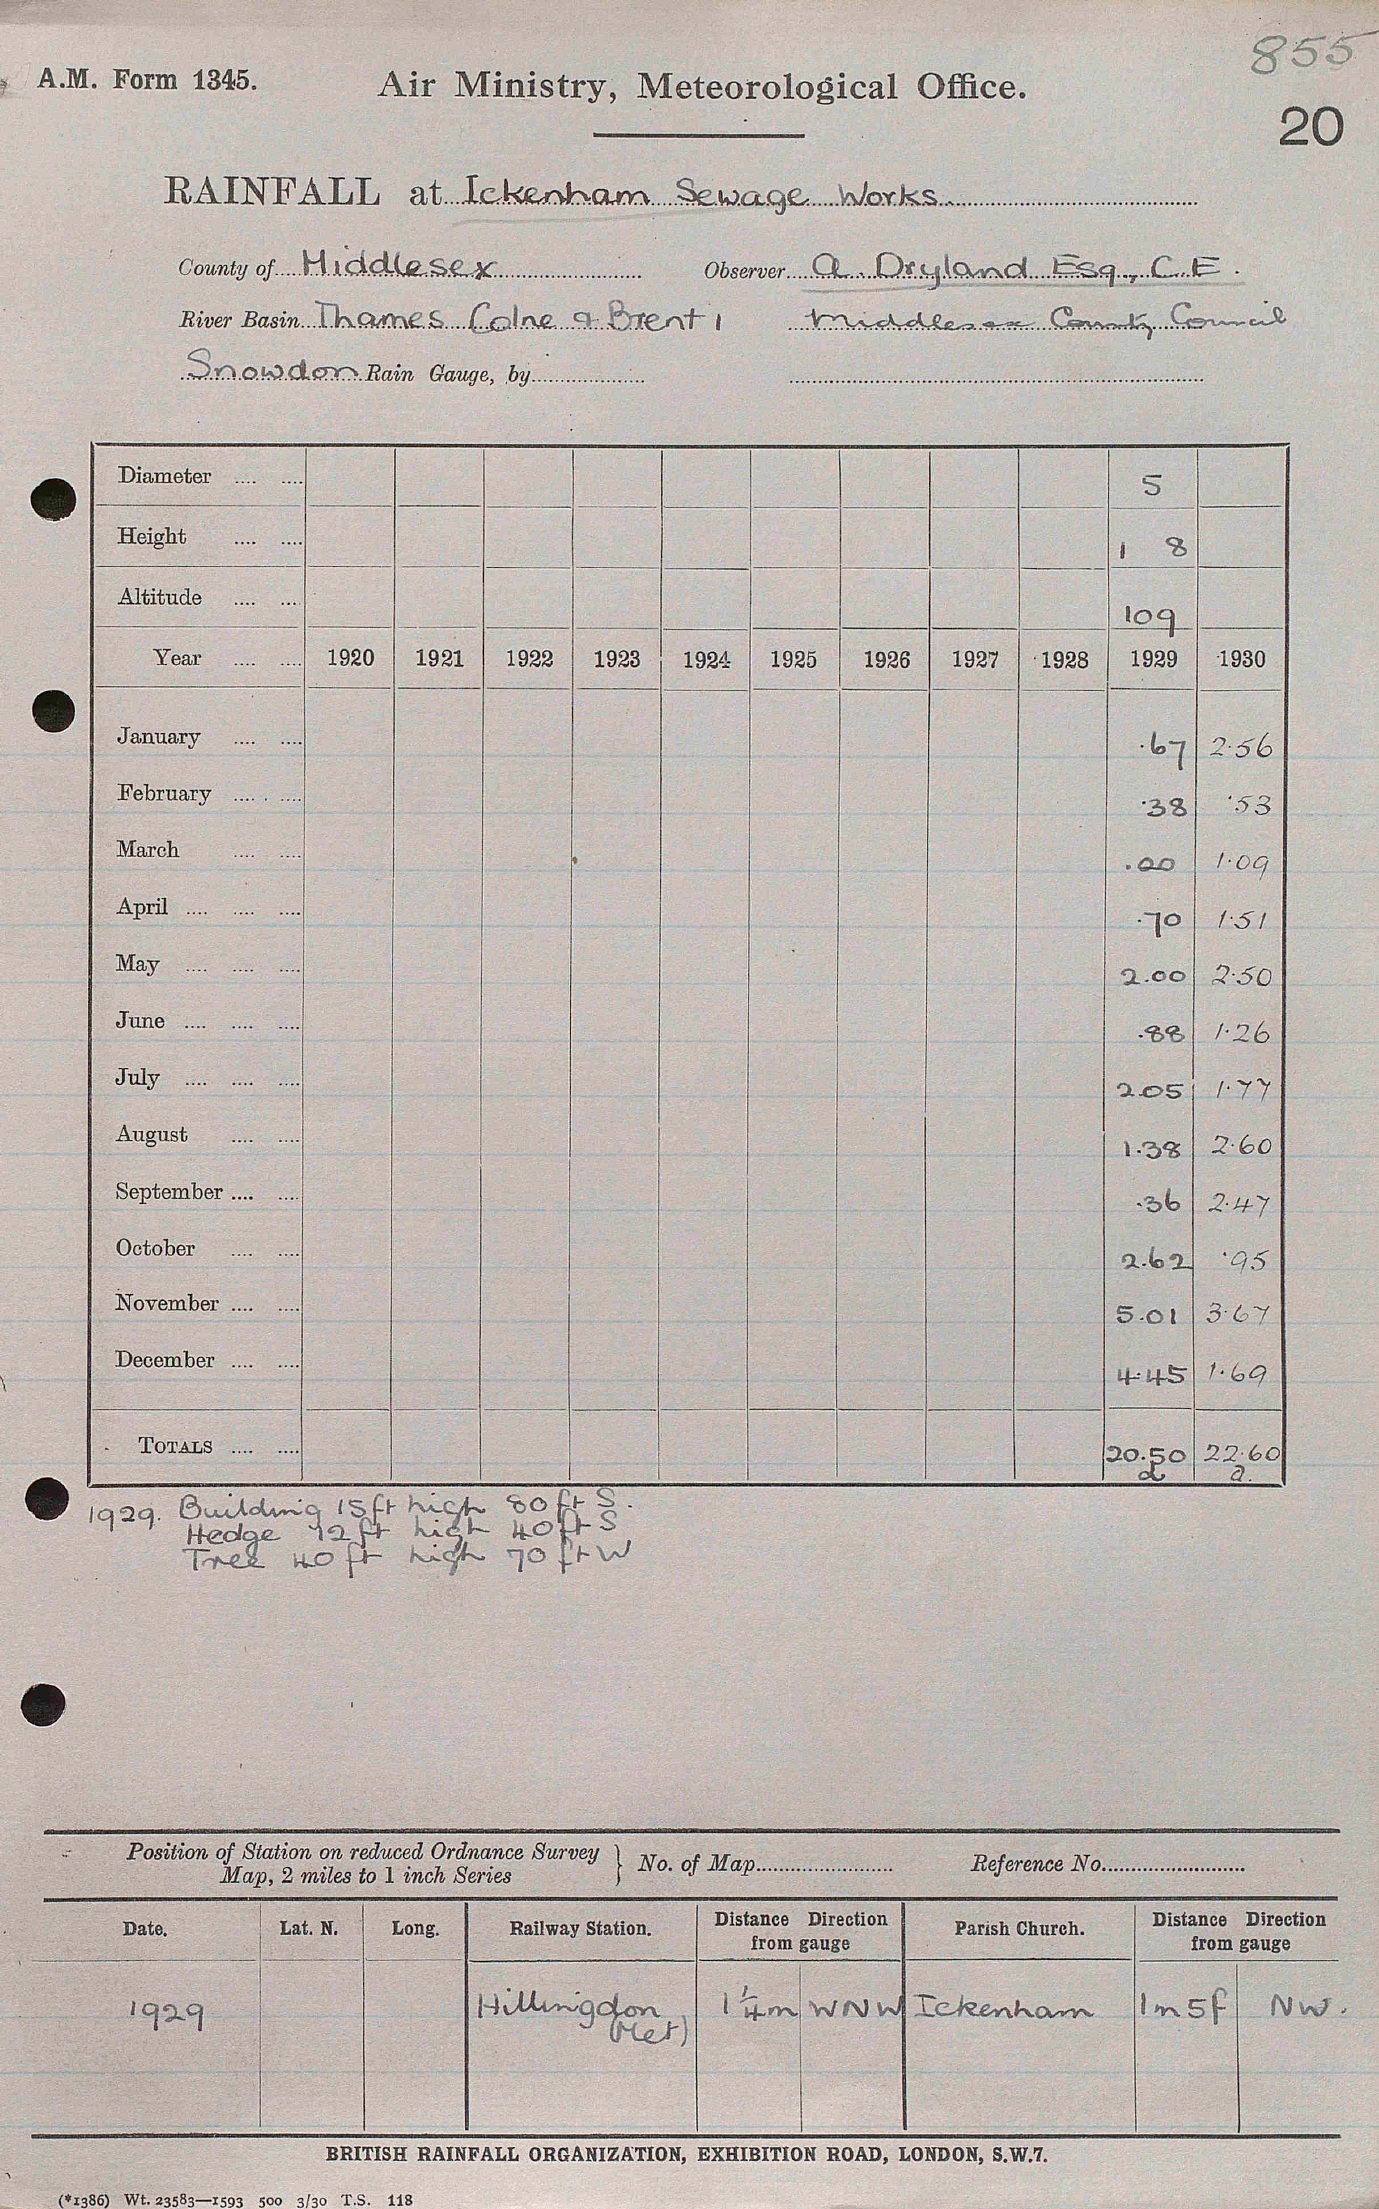 855
A.M. Form 1345. Air Ministry, Meteorological Office.
20
RAINFALL at Ickenham Sewage Works.
County of Middlesex Observer A. Dryland Esq., C.E.
River Basin Thames Colne & Brent 1 Middlesex County Council
Snowdon Rain Gauge, by
Diameter 5
Height 1 8
Altitude 109
Year 1920 1921 1922 1923 1924 1925 1926 1927 1928 1929 1930
January .67 2.56
February .38 .53
March .00 1.09
April .70 1.51
May 2.00 2.50
June .88 1.26
July 2.05 1.77
August 1.38 2.60
September .36 2.47
October 2.62 .95
November 5.01 3.67
December 4.45 1.69
TOTALS 20.50 22.60
d a.
1929. Building 15ft high 80ft S.
Hedge 12ft high 40ft S
Tree 40ft high 70ft W
Position of Station on reduced Ordnance Survey
Map, 2 miles to 1 inch Series } No. of Map Reference No.
Date. Lat. N. Long. Railway Station. Distance Direction from gauge Parish Church. Distance Direction from gauge
1929 Hillingdon (Met) 1 1/4 m WNW Ickenham 1m 5f NW.
BRITISH RAINFALL ORGANIZATION, EXHIBITION ROAD, LONDON, S.W.7.
(*1386) Wt. 23583—1593 500 3/30 T.S. 118